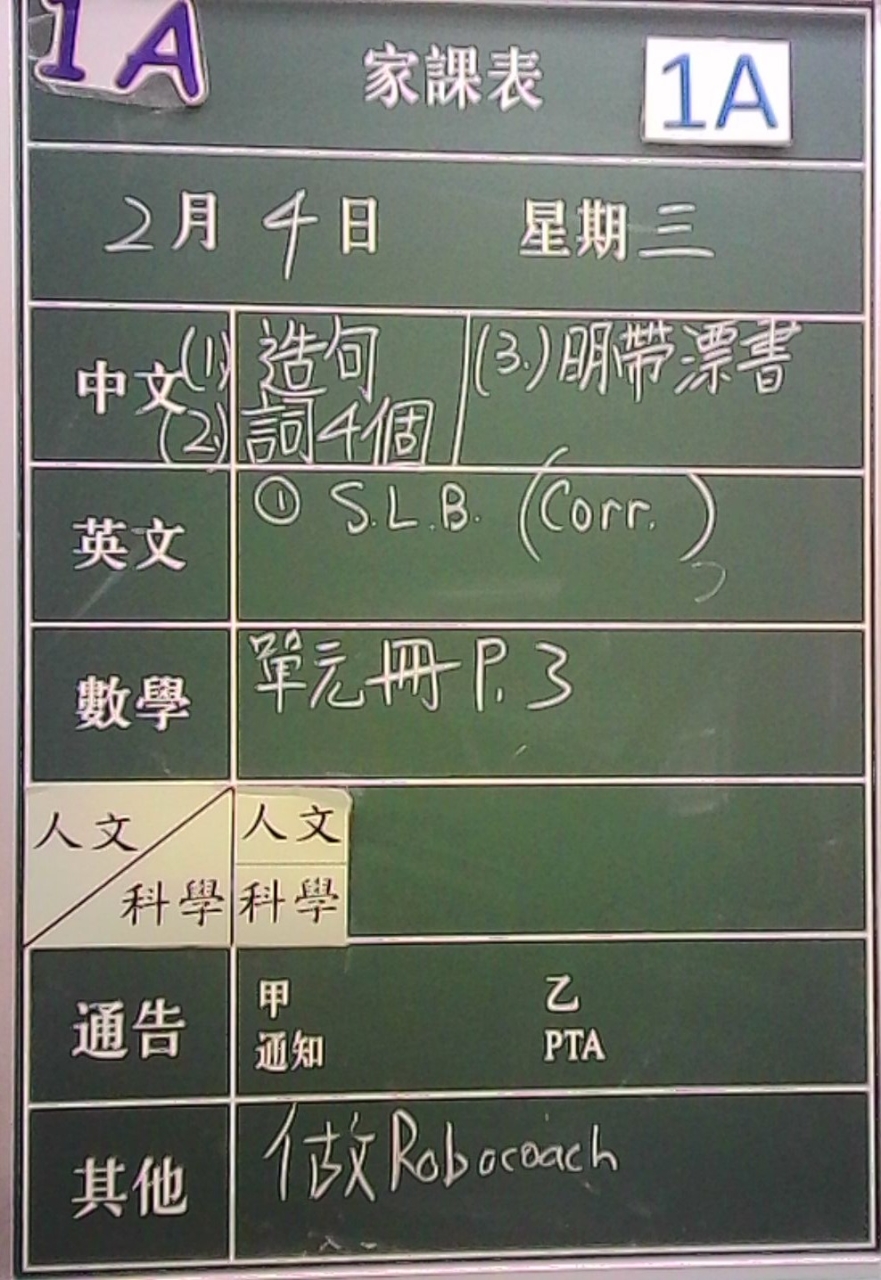 1A
家課表 1A
2月4日 星期三
中文 (1) 造句 (3.) 明帶漂書
(2) 詞4個
英文 ① S.L.B. (Corr.)
數學 單元冊 P. 3
人文 人文
科學 科學
通告 甲 乙
通知 PTA
其他 做Robocoach